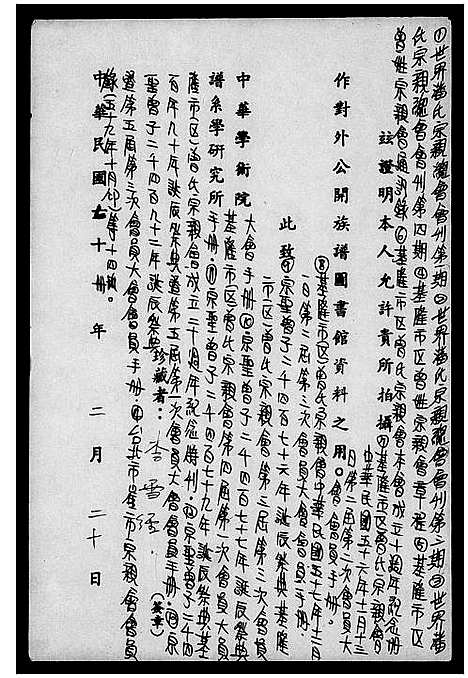 ①世界潘氏宗親總會會刊第一期②世界潘氏宗親總會會刊第二期③世界潘
氏宗親總會會刊第四期④基隆市區曾姓宗親會章程⑤基隆市區
曾姓宗親會通訊錄⑥基隆市區曾姓宗親會本會成立十週年紀念冊
茲證明本人允許貴所拍攝⑦基隆市區曾氏宗親會
中華民國五十六年十二月十三
日第二屆第一次會員大
作對外公開族譜圖書館資料之用。會會員手冊。
⑧基隆市區曾氏宗親會中華民國五十七年十二月
一日第二屆第二次會員大會會員手冊。
此致⑨宗聖曾子二千四百七十六年誕辰祭典基隆
市區曾氏宗親會第三屆第三次會員
大會手冊⑩宗聖曾子二千四百七十七年誕辰祭典
中華學術院
基隆市區曾氏宗親會第四屆第一次會員大會
譜系學研究所手冊。⑪宗聖曾子二千四百七十九年誕辰祭典基
隆市區曾氏宗親會成立二十週年紀念特刊。⑫宗聖曾子二千四
百年九十年誕辰祭典暨第五屆第一次會員大會會員手冊。⑬宗
聖曾子二千四百九十二年誕辰祭典
珍藏者：李雪
(簽章)
暨第五屆第三次會員大會會員手冊。⑭台北市
宗親會會員
錄(五十九年十月印)第十四
中華民國七十
年 二月 二十日